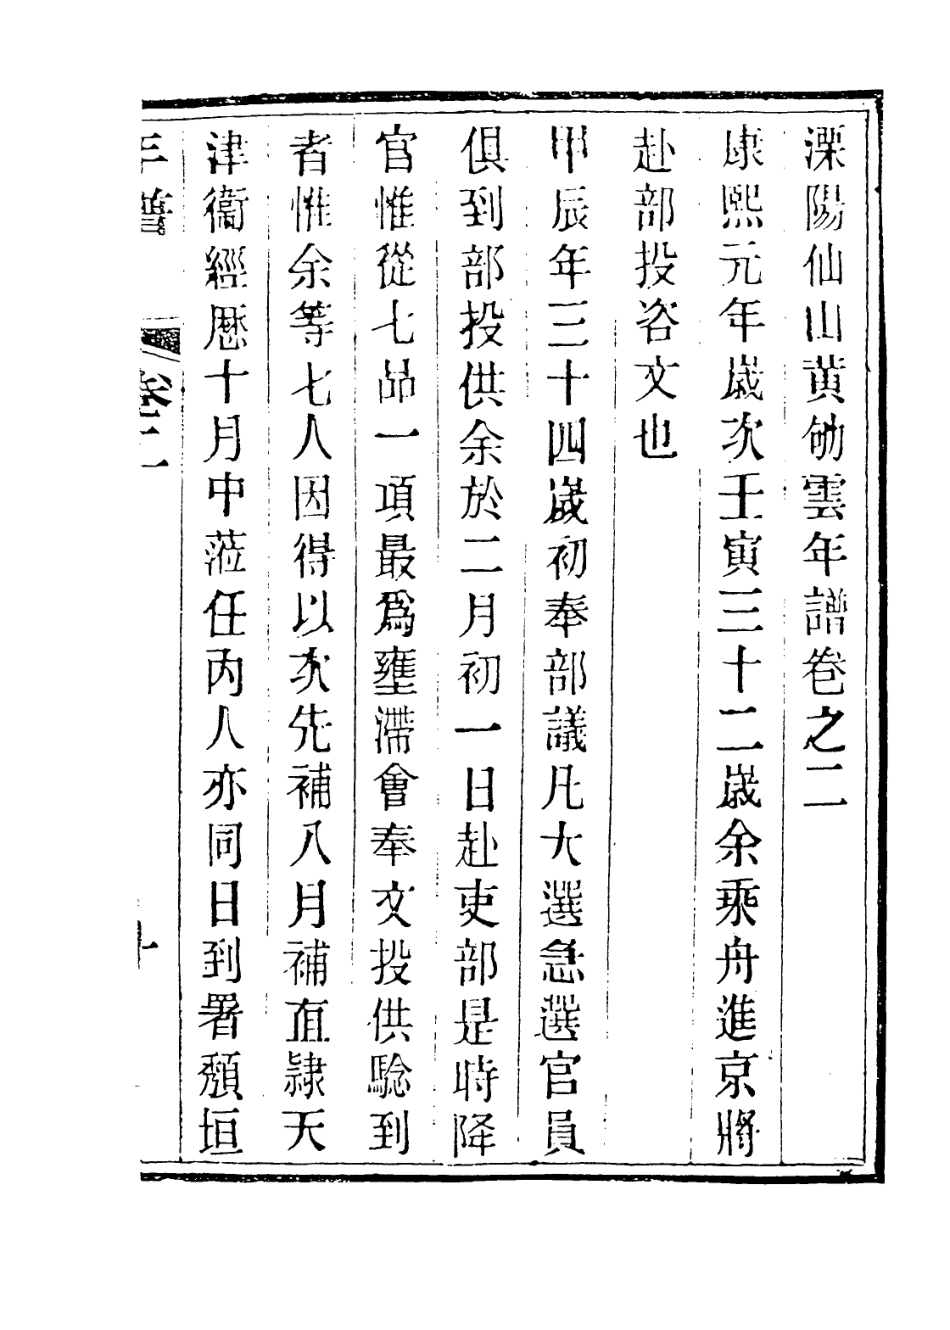 溧陽仙山黃劬雲年譜卷之二
康熙元年歲次壬寅三十二歲余乘舟進京將
赴部投咨文也
甲辰年三十四歲初奉部議凡大選急選官員
俱到部投供余於二月初一日赴吏部是時降
官惟從七品一項最爲壅滯會奉文投供驗到
者惟余等七人因得以次先補八月補直隷天
津衞經厯十月中蒞任丙人亦同日到署頹垣
年譜 卷二 十